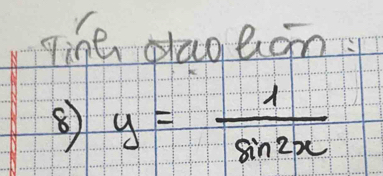 Tính đạo hàm:
8) y = 1/sin2x